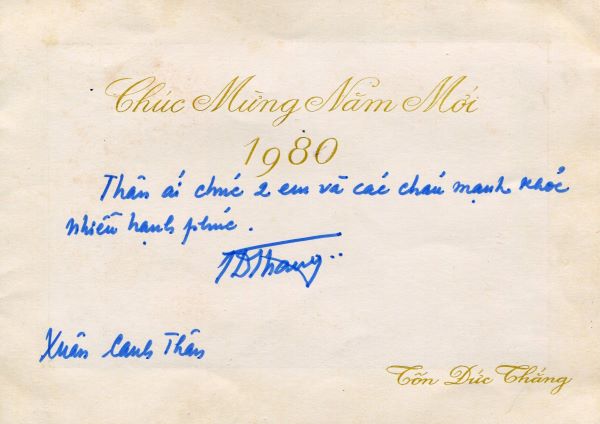 Chúc Mừng Năm Mới
1980
Thân ái chúc 2 em và các cháu mạnh khoẻ
nhiều hạnh phúc.
TĐThắng
Xuân Canh Thân
Tôn Đức Thắng